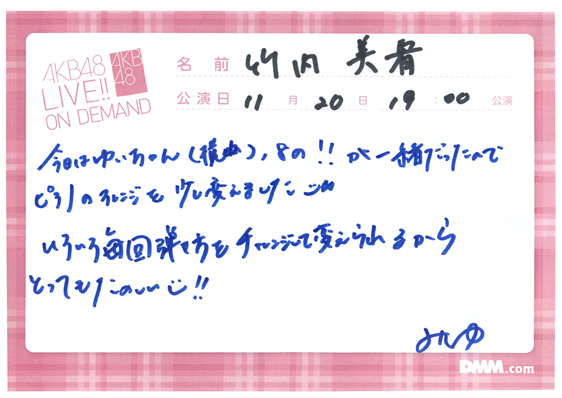 AKB48
LIVE!!
ON DEMAND
AKB
48
名前 竹内 美宥
公演日 11月20日 19:00公演
今日はゆいちゃん(横山)、その!!が一緒だったので
ピアノのアレンジを少し変えました
いろいろ毎回弾き方をチャレンジして変えられるから
とってもたのしい!!
みゆ
DMM.com